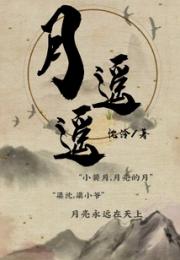 月
遥
遥
/著
"小裴月,月亮的月"
"梁沈,梁小爷"
月亮永远在天上